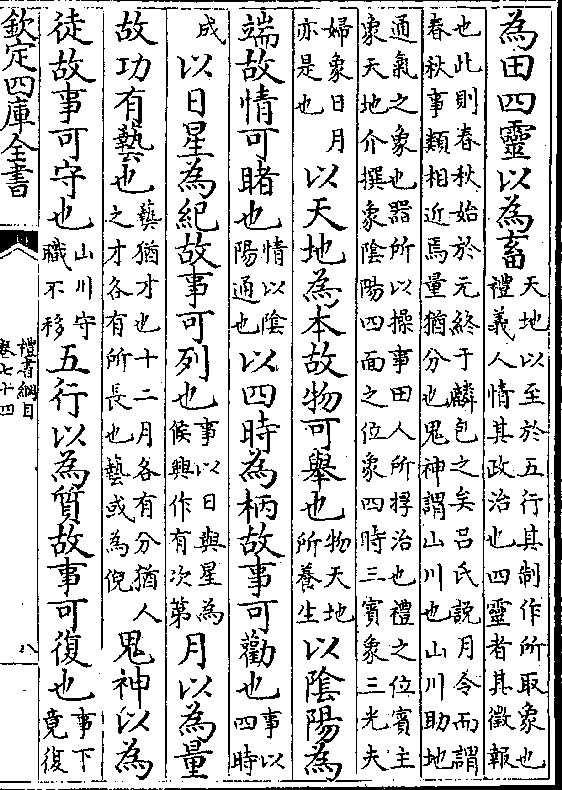 為田四靈以為畜天地以至於五行其制作所取象也禮義人情其政治也四靈者其徵報
也此則春秋始於元終于麟包之矣呂氏說月令而謂
春秋事類相近焉量猶分也鬼神謂山川也山川助地
通氣之象也器所以操事田人所捊治也禮之位賓主
象天地介撰象陰陽四面之位象四時三賓象三光夫
婦象日月亦是也以天地為本故物可舉也物天地所養生以陰陽為
端故情可睹也情以陰陽通也以四時為柄故事可勸也事以四時
成以日星為紀故事可列也事以日與星為候興作有次第月以為量
故功有藝也藝猶才也十二月各有分猶人之才各有所長也藝或為倪鬼神以為
徒故事可守也山川守職不移五行以為質故事可復也事下竟復
欽定四庫全書
禮書綱目
卷七十四
八